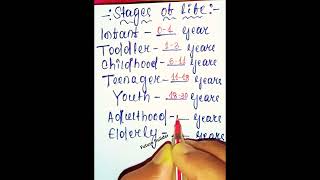 Stages of Life:
Infant - 0-1 year
Toddler - 1-3 years
Childhood - 6-11 years
Teenager - 11-18 years
Youth - 18-30 years
Adulthood - years
Elderly - years